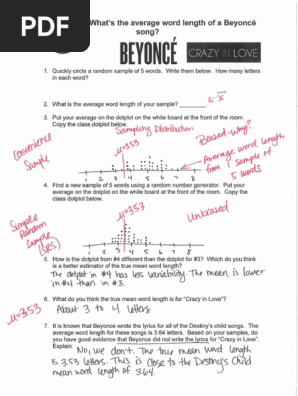 PDF
What's the average word length of a Beyoncé
song?
BEYONCÉ
CRAZY IN LOVE
1. Quickly circle a random sample of 5 words. Write them below. How many letters
in each word?
2. What is the average word length of your sample? ________ ← x̄
3. Put your average on the dotplot on the white board at the front of the room.
Copy the class dotplot below.
Sampling Distribution
Biased-why?
Convenience
Sample
μ=3.53
Average word
length from
1 sample of
5 words
1 2 3 4 5 6 7 8
4. Find a new sample of 5 words using a random number generator. Put your
average on the dotplot on the white board at the front of the room. Copy the
class dotplot below.
Simple
Random
Sample
(SRS)
μ=3.53
Unbiased
1 2 3 4 5 6 7 8
5. How is the dotplot from #4 different than the dotplot for #3? Which do you think
is a better estimator of the true mean word length?
The dotplot in #4 has less variability. The mean is lower
in #4 than in #3.
6. What do you think the true mean word length is for "Crazy in Love"?
μ=3.53
About 3 to 4 letters
7. It is known that Beyonce wrote the lyrics for all of the Destiny's child songs. The
average word length for these songs is 3.64 letters. Based on your samples, do
you have good evidence that Beyoncé did not write the lyrics for "Crazy in Love"?
Explain.
No, we don't. The true mean word length
is 3.53 letters. This is close to the Destiny's Child
mean word length of 3.64.